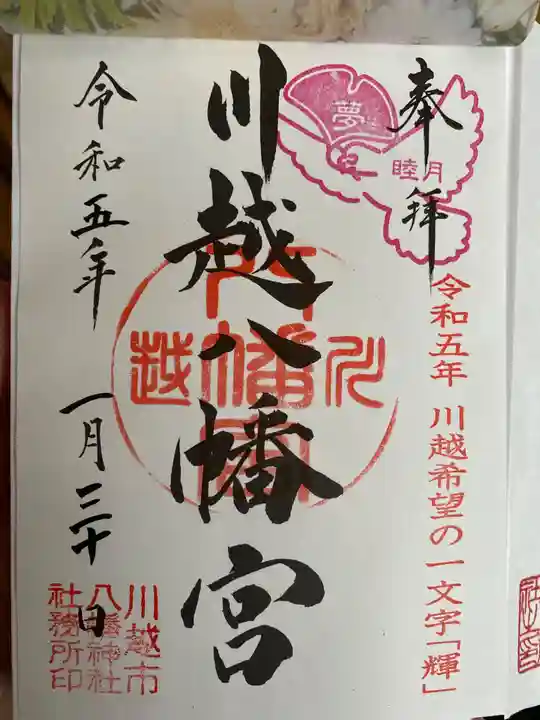 奉拝
夢
睦月
令和五年 川越希望の一文字「輝」
川越八幡宮
川越
八幡宮
令和五年 一月三十日
川越市
八幡神社
社務所印